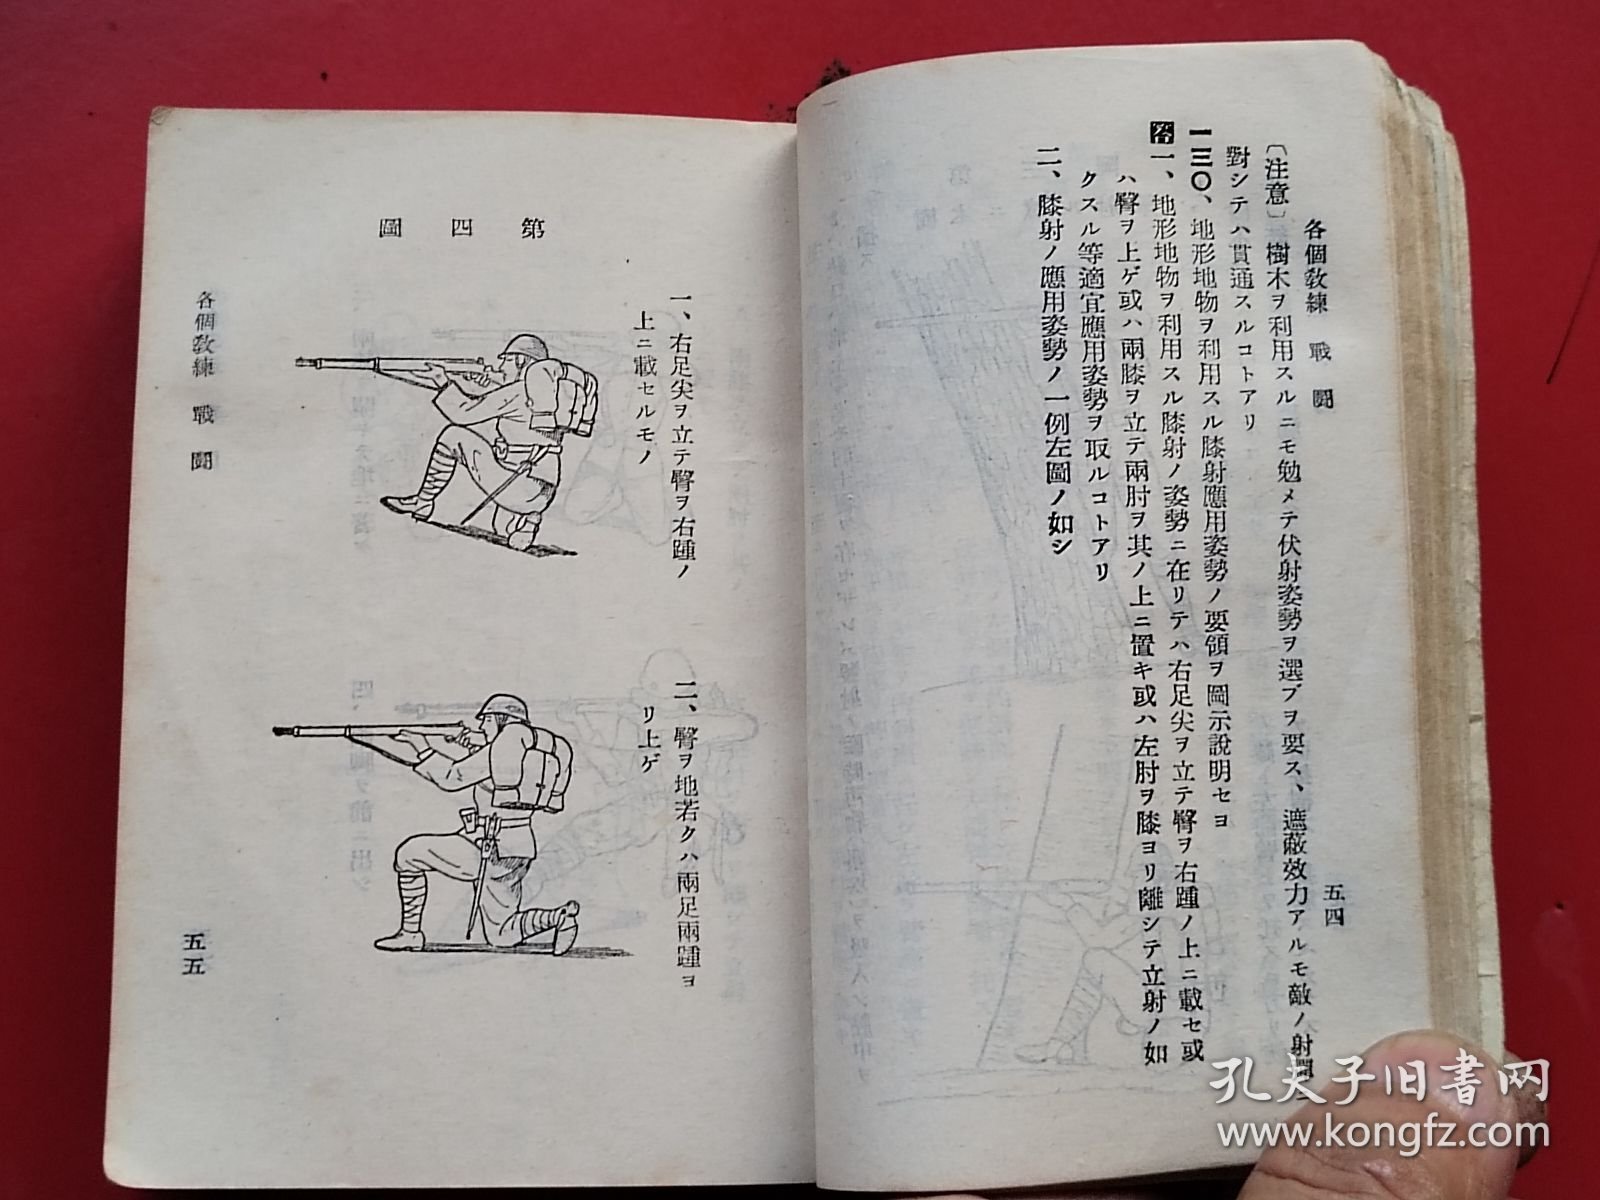 各個教練 戰鬪
五四
〔注意〕樹木ヲ利用スルニモ勉メテ伏射姿勢ヲ選ブヲ要ス、遮蔽效力アルモ敵ノ射彈ニ
對シテハ貫通スルコトアリ
一三〇、地形地物ヲ利用スル膝射應用姿勢ノ要領ヲ圖示說明セヨ
答一、地形地物ヲ利用スル膝射ノ姿勢ニ在リテハ右足尖ヲ立テ臀ヲ右踵ノ上ニ載セ或
ハ臀ヲ上ゲ或ハ兩膝ヲ立テ兩肘ヲ其ノ上ニ置キ或ハ左肘ヲ膝ヨリ離シテ立射ノ如
クスル等適宜應用姿勢ヲ取ルコトアリ
二、膝射ノ應用姿勢ノ一例左圖ノ如シ
第四圖
一、右足尖ヲ立テ臀ヲ右踵ノ
上ニ載セルモノ
二、臀ヲ地若クハ兩足兩踵ヨ
リ上ゲ
各個教練 戰鬪
五五
孔夫子旧书网
www.kongfz.com